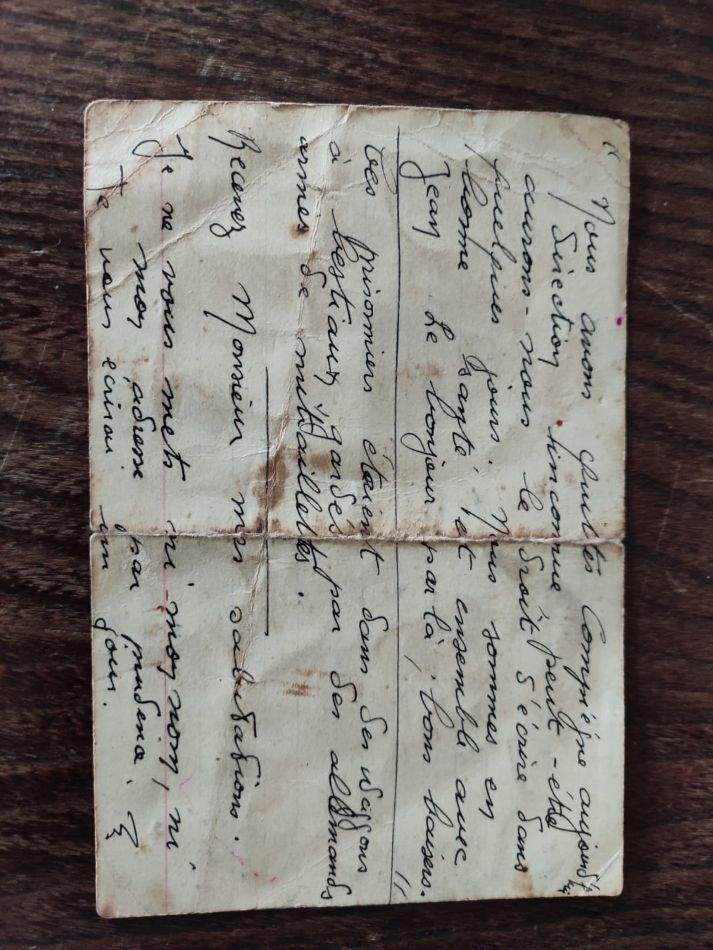 " Nous avons quittés Compiègne aujourd'hui
direction inconnue peut-être
aurons-nous le droit d'écrire dans
quelques jours. Nous sommes en
bonne santé et ensemble avec
Jean Le bonjour par là, bons baisers. "
Les prisonniers étaient dans des wagons
à bestiaux gardés par des allemands
armés de mitraillettes.
Recevez Monsieur mes salutations.
Je ne vous mets ni mon nom, ni
mon adresse par prudence.
Je vous écrirai un jour.